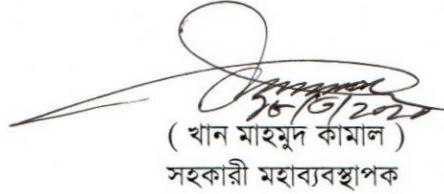 ( খান মাহমুদ কামাল )
সহকারী মহাব্যবস্থাপক